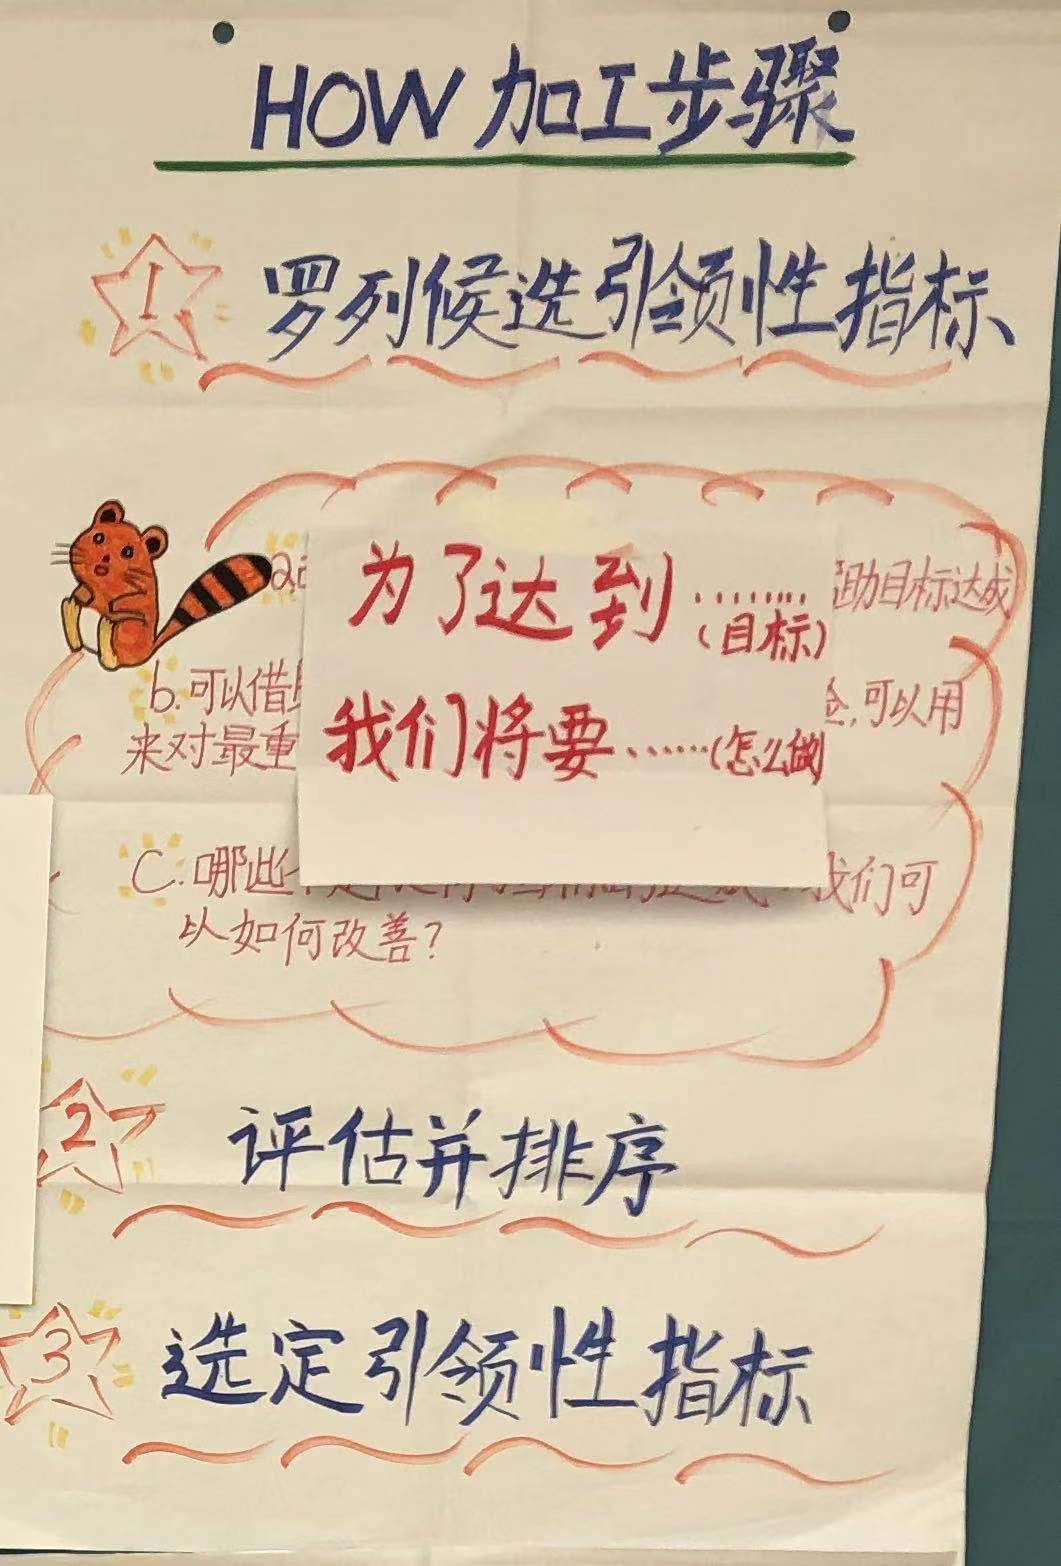 HOW 加工步骤
1 罗列候选引领性指标
为了达到........
(目标)
我们将要......(怎么做)
助目标达成
b.可以借
,可以用
来对最重
C.哪些
我们可
以如何改善?
2 评估并排序
3 选定引领性指标